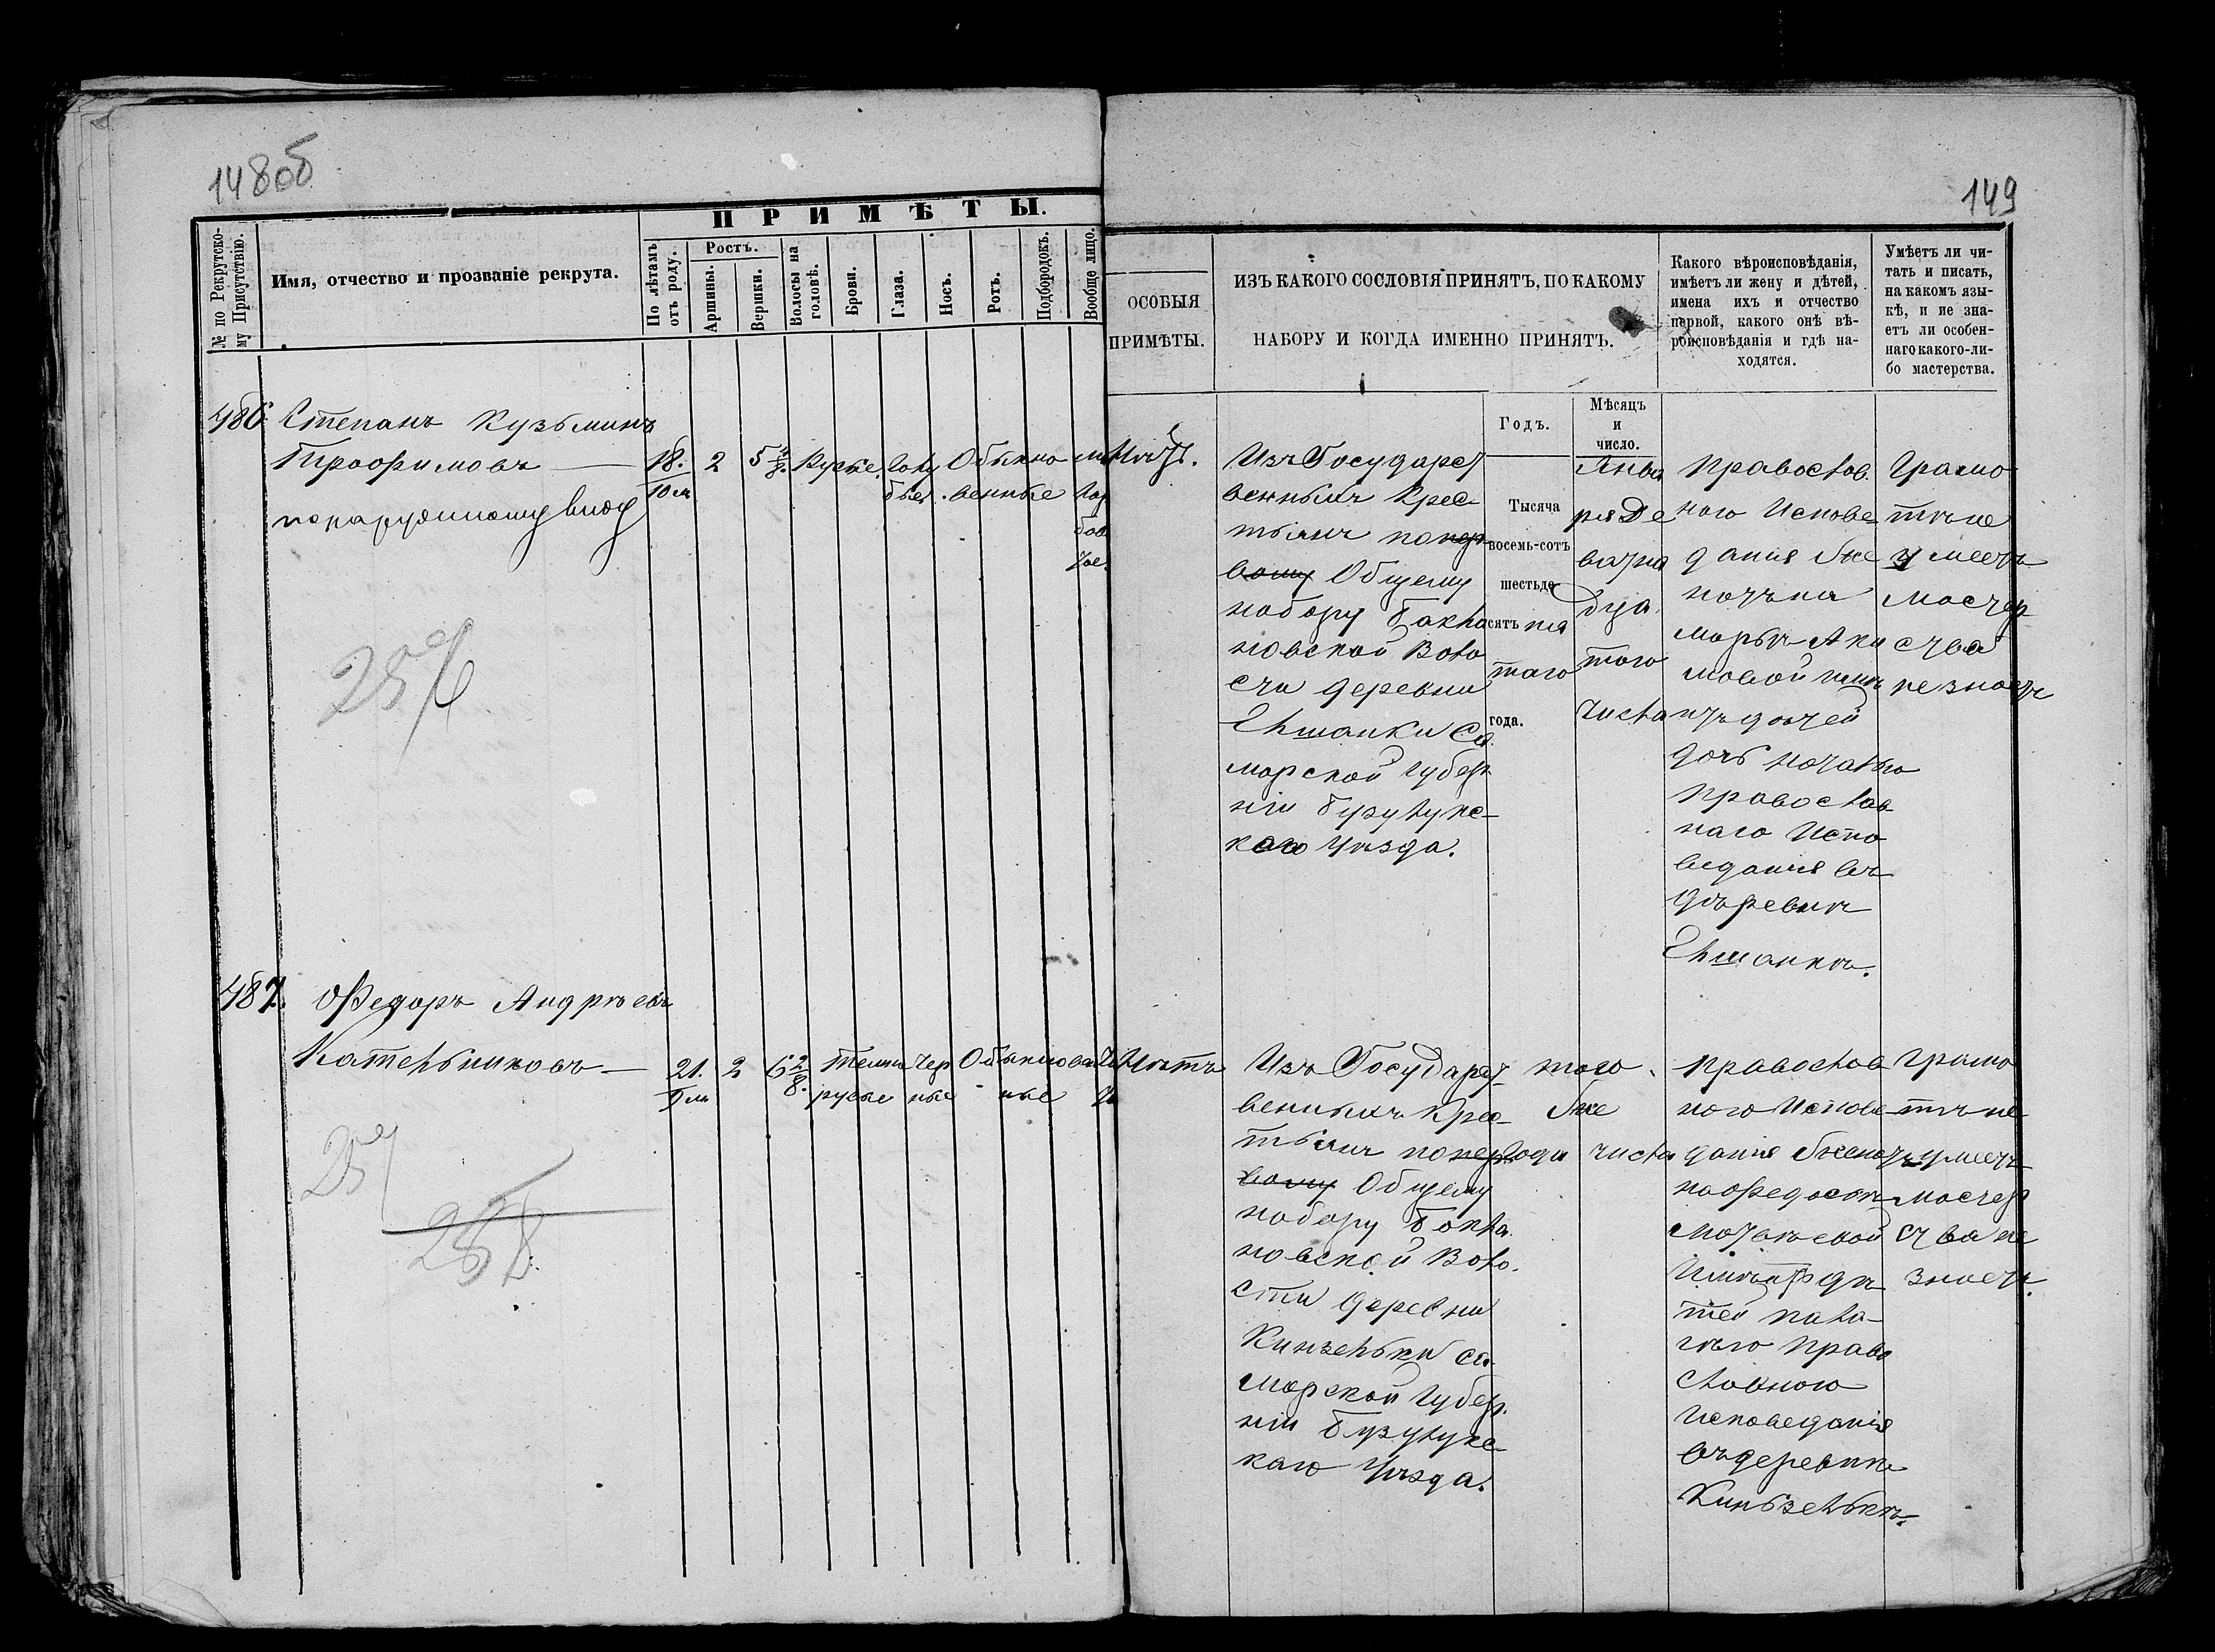 148об
149
ПРИМѢТЫ.
№ по Рекрутско-
му Присутствію.
Имя, отчество и прозваніе рекрута.
По лѣтамъ
отъ роду.
Ростъ.
Аршины.
Вершки.
Волосы на
головѣ.
Брови.
Глаза.
Носъ.
Ротъ.
Подбородокъ.
Вообще лицо.
ОСОБЫЯ
ПРИМѢТЫ.
ИЗЪ КАКОГО СОСЛОВІЯ ПРИНЯТЪ, ПО КАКОМУ
НАБОРУ И КОГДА ИМЕННО ПРИНЯТЪ.
Какого вѣроисповѣданія,
имѣетъ ли жену и дѣтей,
имена ихъ и отчество
первой, какого онѣ вѣ-
роисповѣданія и гдѣ на-
ходятся.
Умѣетъ ли чи-
тать и писать,
на какомъ язы-
кѣ, и не зна-
етъ ли особен-
наго какого-ли-
бо мастерства.
Годъ.
Мѣсяцъ
и
число.
486
Степанъ Кузьминъ
Трофимовъ —
по наружному виду
18.
10 м
2
5 3/8.
Русые
голу
бые.
Обыкно
венные
Нѣтъ.
Изъ Государст
венныхъ Крес
тьянъ по пер
вому Общему
набору Бакла
новской Воло
сти деревни
Елшанки Са
марской Губер
ніи Бузулукс-
каго Уѣзда.
Тысяча
восемь-сотъ
шестьде
сятъ пя
таго
года.
Янва
ря Де
вятна
дца
таго
числа
Православ
наго Испове
данія Же
натъ на
Марьѣ Аки
мовой имѣ
етъ детей
дочь Наталью
Православ
наго Испо
веданія въ
деревнѣ
Елшанкѣ.
Грамо
тѣ не
умеетъ
мастер
ства
не знаетъ
487.
Федоръ Андрѣевъ
Котельниковъ —
21.
9 м
2
6 2/8.
темно
русые
Чер
ные
Обыкновен
ные
Нѣтъ
Изъ Государст
венныхъ Крес
тьянъ по пер
вому Общему
набору Бакла
новской Воло
сти деревни
Кинзельки Са
марской Губер
ніи Бузулукс
каго Уѣзда.
того
года
Же
числа
Православ
наго Испове
данія Женатъ
на Федосьѣ
Матвѣевой
Имѣетъ дѣ
тей Пела
гѣю Право
славнаго
Исповеданія
въ деревнѣ
Киньзелькѣ.
Грамо
тѣ не
умеетъ
мастер
ства не
знаетъ.